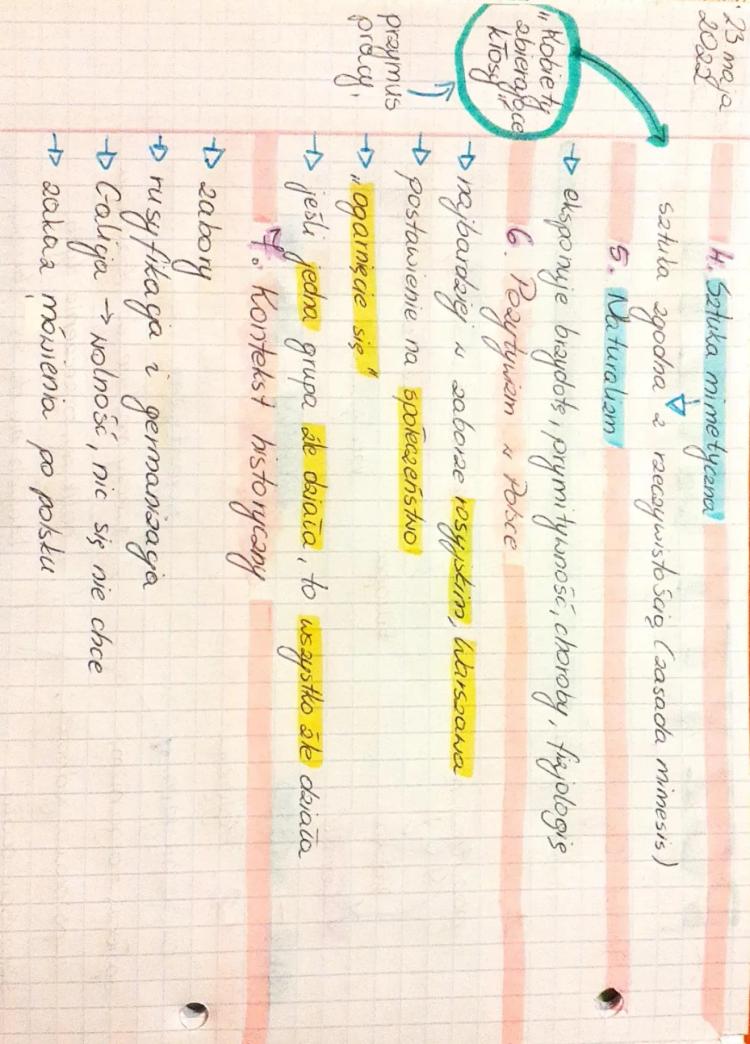 23 maja
2022
4. Sztuka mimetyczna
"Kobiety
zbierające
kłosy"
sztuka zgodna z rzeczywistością (zasada mimesis)
5. Naturalizm
→ eksponuje brzydotę, prymitywność, choroby, fizjologię
6. Pozytywizm w Polsce
→ najbardziej w zaborze rosyjskim, Warszawa
→ postawienie na społeczeństwo
przymus
pracy,
→ "ogarnięcie się"
→ jeśli jedna grupa źle działa, to wszystko źle działa
7. Kontekst historyczny
→ zabory
→ rusyfikacja i germanizacja
→ Galicja → wolność, nic się nie chce
→ zakaz mówienia po polsku